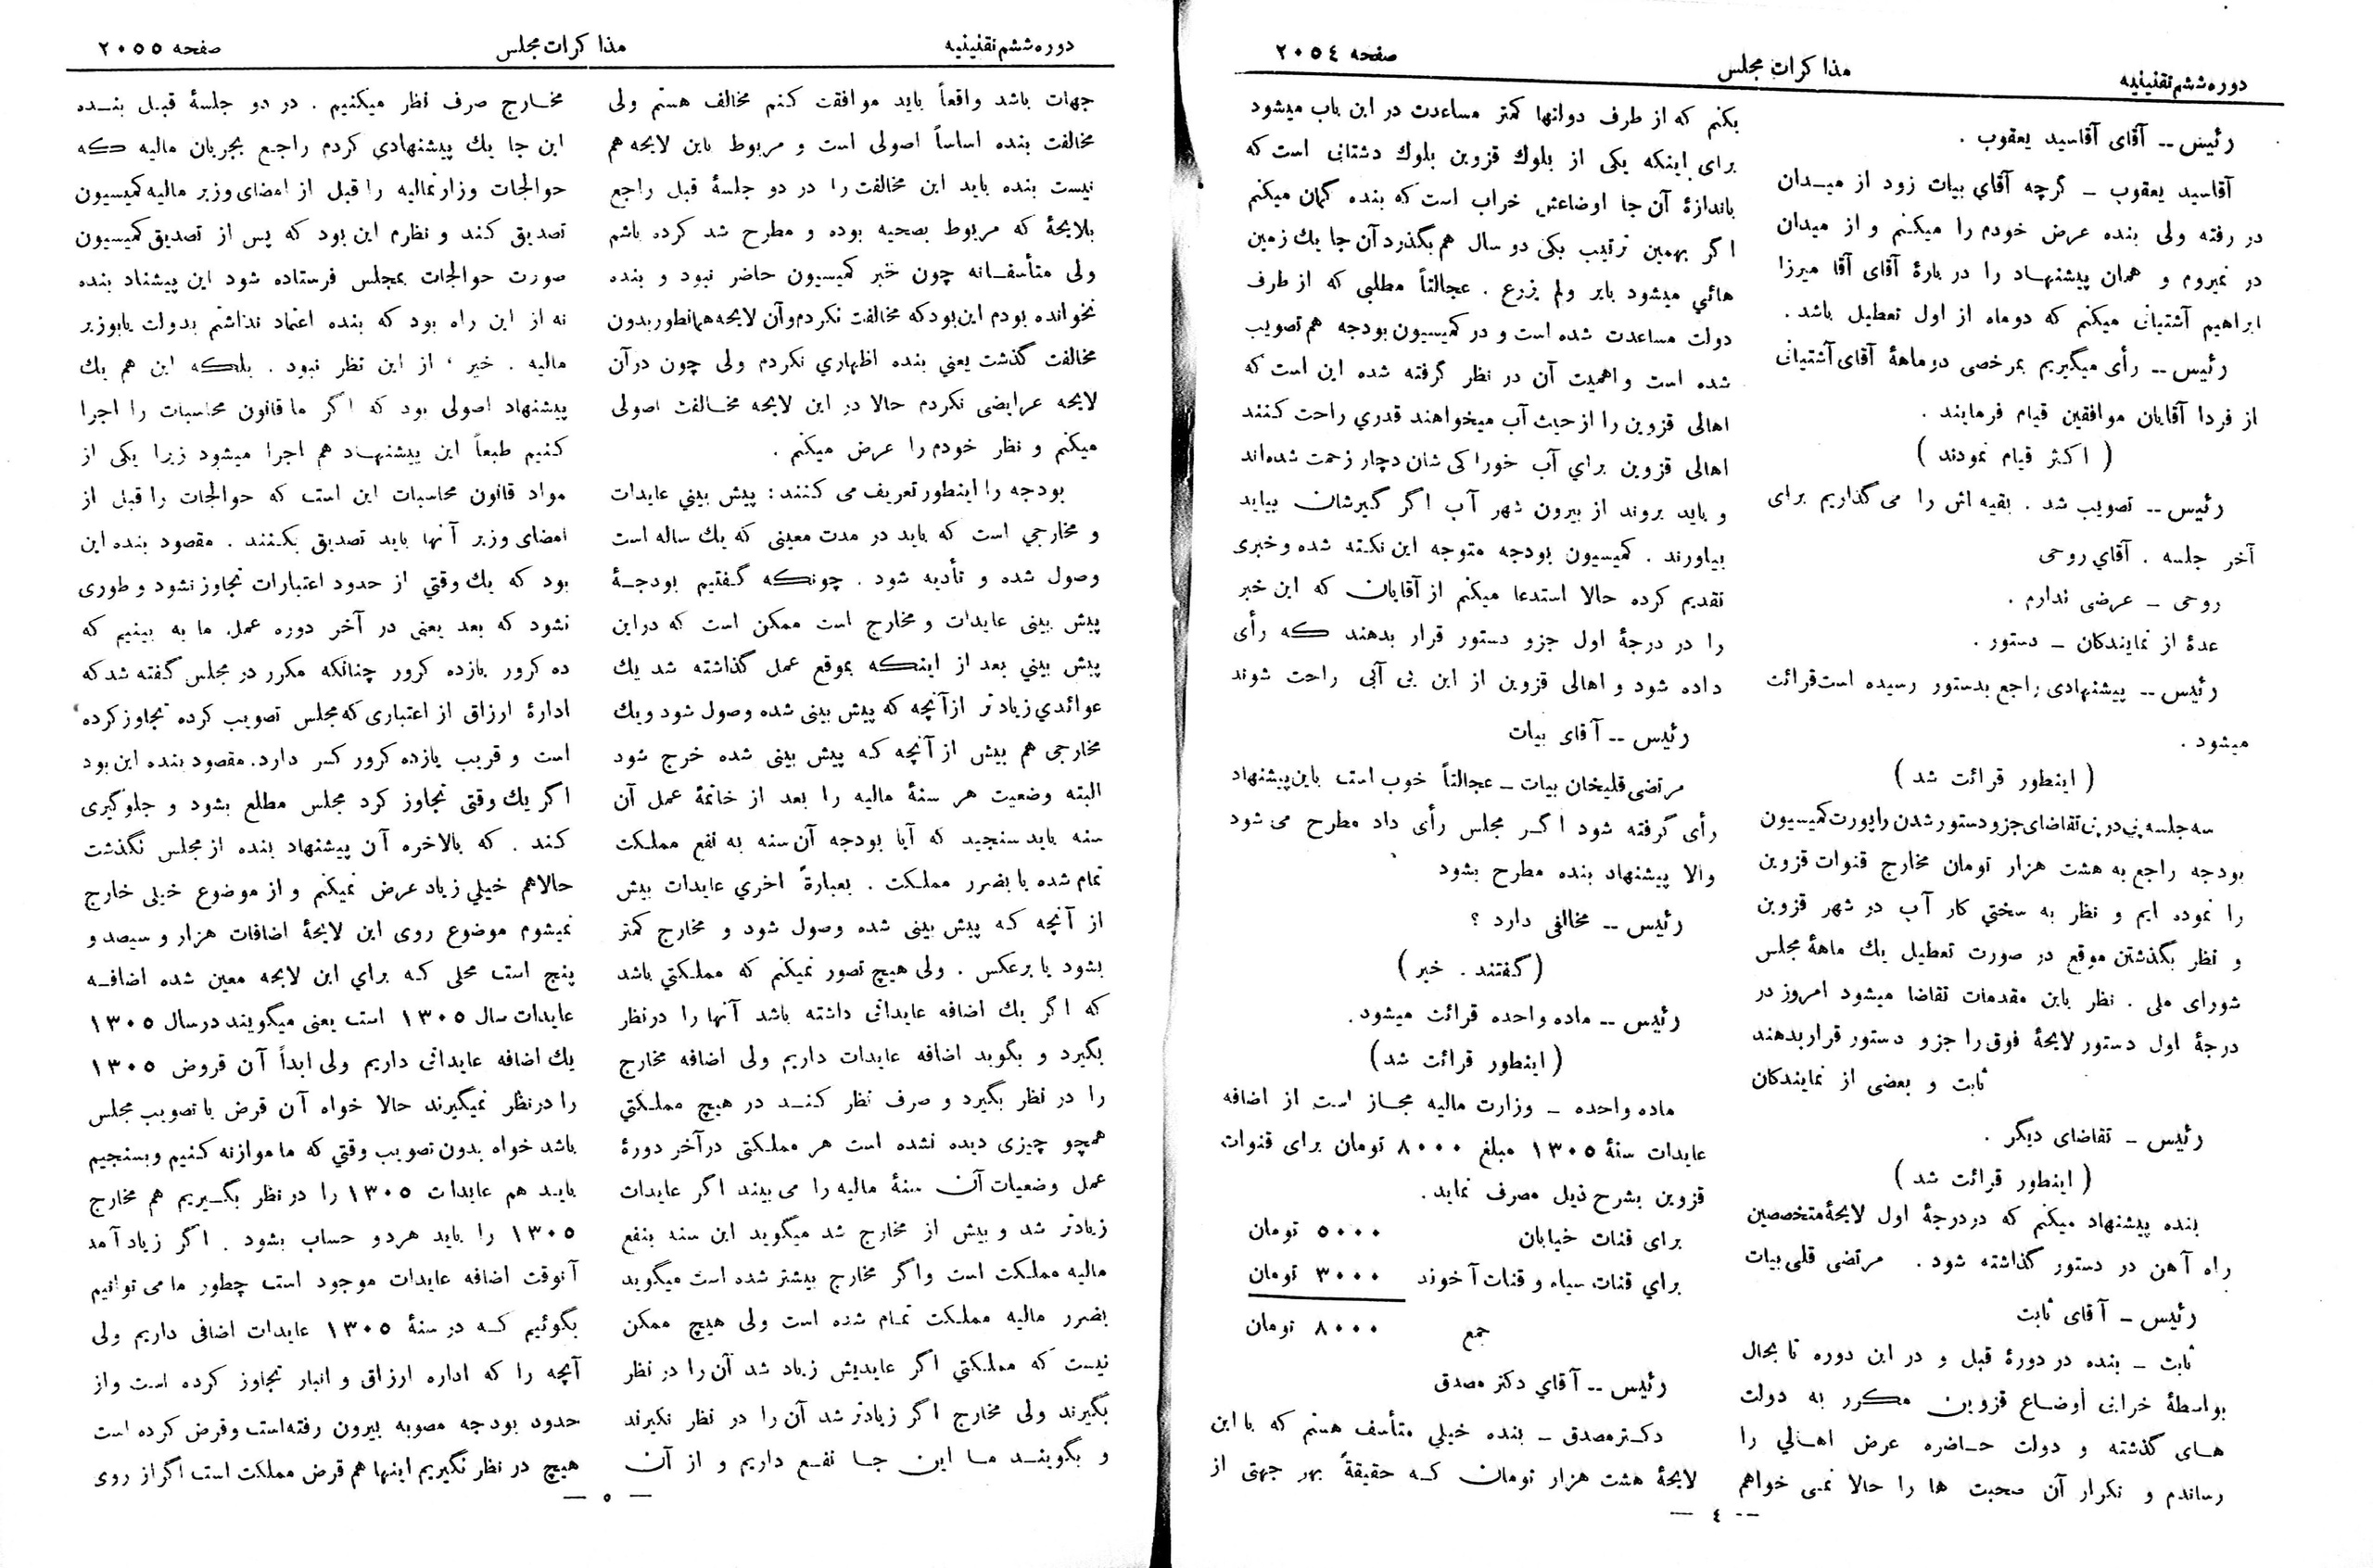 دوره ششم تقنینیه
مذاکرات مجلس
صفحه ۲۰۵٤
رئیس -- آقای آقاسید یعقوب .
آقاسید یعقوب - گرچه آقای بیات زود از میدان
در رفته ولی بنده عرض خودم را میکنم و از میدان
در نمیروم و همان پیشنهاد را در بارهٔ آقای آقا میرزا
ابراهیم آشتیانی میکنم که دوماه از اول تعطیل باشد .
رئیس -- رأی میگیریم بمرخصی دوماههٔ آقای آشتیانی
از فردا آقایان موافقین قیام فرمایند .
( اکثر قیام نمودند )
رئیس -- تصویب شد . بقیه اش را می گذاریم برای
آخر جلسه . آقاي روحی
روحی - عرضی ندارم .
عدهٔ از نمایندکان - دستور .
رئیس -- پیشنهادی راجع بدستور رسیده است قرائت
میشود .
( اینطور قرائت شد )
سه جلسه پی در پی تقاضای جزو دستور شدن راپورت کمیسیون
بودجه راجع به هشت هزار تومان مخارج قنوات قزوین
را نموده ایم و نظر به سختي کار آب در شهر قزوین
و نظر بگذشتن موقع در صورت تعطیل یك ماههٔ مجلس
شورای ملی . نظر باین مقدمات تقاضا میشود امروز در
درجهٔ اول دستور لایحهٔ فوق را جزو دستور قرار بدهند
ثابت و بعضی از نمایندکان
رئیس - تقاضای دیگر .
( اینطور قرائت شد )
بنده پیشنهاد میکنم که در درجهٔ اول لایحهٔ متخصصین
راه آهن در دستور گذاشته شود . مرتضی قلی بیات
رئیس - آقای ثابت
ثابت - بنده در دورهٔ قبل و در این دوره تا بحال
بواسطهٔ خرابی أوضاع قزوین مکرر به دولت
های گذشته و دولت حاضره عرض اهالي را
رساندم و تکرار آن صحبت ها را حالا نمی خواهم
بکنم که از طرف دولتها کمتر مساعدت در این باب میشود
برای اینکه یکی از بلوك قزوین بلوك دشتابی است که
باندازهٔ آن جا اوضاعش خراب است که بنده گمان میکنم
اگر بهمین ترتیب یکی دو سال هم بگذرد آن جا یك زمین
هائي میشود بایر ولم یزرع . عجالتاً مطلبی که از طرف
دولت مساعدت شده است و در کمیسیون بودجه هم تصویب
شده است و اهمیت آن در نظر گرفته شده این است که
اهالی قزوین را از حیث آب میخواهند قدري راحت کنند
اهالی قزوین براي آب خوراکی شان دچار زحمت شده اند
و باید بروند از بیرون شهر آب اگر گیرشان بیاید
بیاورند . کمیسیون بودجه متوجه این نکته شده و خبری
تقدیم کرده حالا استدعا میکنم از آقایان که این خبر
را در درجهٔ اول جزو دستور قرار بدهند که رأی
داده شود و اهالی قزوین از این بی آبی راحت شوند
رئیس -- آقای بیات
مرتضی قلیخان بیات - عجالتاً خوب است باین پیشنهاد
رأی گرفته شود اگر مجلس رأی داد مطرح می شود
والا پیشنهاد بنده مطرح بشود
رئیس -- مخالفی دارد ؟
( گفتند . خیر )
رئیس -- ماده واحده قرائت میشود .
( اینطور قرائت شد )
ماده واحده - وزارت مالیه مجاز است از اضافه
عایدات سنهٔ ۱۳۰۵ مبلغ ۸۰۰۰ تومان برای قنوات
قزوین بشرح ذیل مصرف نماید .
برای قنات خیابان ۵۰۰۰ تومان
براي قنات سیاه و قنات آخوند ۳۰۰۰ تومان
جمع ۸۰۰۰ تومان
رئیس -- آقاي دکتر مصدق
دکتر مصدق - بنده خیلي متأسف هستم که با این
لایحهٔ هشت هزار تومان که حقیقةً بهر جهتی از
-- ٤ --
دوره ششم تقنینیه
مذاکرات مجلس
صفحه ۲۰۵۵
جهات باشد واقعاً باید موافقت کنم مخالف هستم ولی
مخالفت بنده اساساً اصولی است و مربوط باین لایحه هم
نیست بنده باید این مخالفت را در دو جلسهٔ قبل راجع
بلایحهٔ که مربوط بصحیه بوده و مطرح شد کرده باشم
ولی متأسفانه چون خبر کمیسیون حاضر نبود و بنده
نخوانده بودم این بود که مخالفت نکردم و آن لایحه همانطور بدون
مخالفت گذشت یعني بنده اظهاري نکردم ولی چون در آن
لایحه عرایضی نکردم حالا در این لایحه مخالفت اصولی
میکنم و نظر خودم را عرض میکنم .
بودجه را اینطور تعریف می کنند : پیش بیني عایدات
و مخارجي است که باید در مدت معینی که یك ساله است
وصول شده و تأدیه شود . چونکه گفتیم بودجهٔ
پیش بینی عایدات و مخارج است ممکن است که در این
پیش بیني بعد از اینکه بموقع عمل گذاشته شد یك
عوائدي زیادتر از آنچه که پیش بینی شده وصول شود و یك
مخارجی هم بیش از آنچه که پیش بینی شده خرج شود
البته وضعیت هر سنهٔ مالیه را بعد از خاتمهٔ عمل آن
سنه باید سنجید که آیا بودجه آن سنه به نفع مملکت
تمام شده یا بضرر مملکت . بعبارةً اخري عایدات بیش
از آنچه که پیش بینی شده وصول شود و مخارج کمتر
بشود یا برعکس . ولی هیچ تصور نمیکنم که مملکتي باشد
که اگر یك اضافه عایداتی داشته باشد آنها را در نظر
بگیرد و بگوید اضافه عایدات داریم ولی اضافه مخارج
را در نظر بگیرد و صرف نظر کند در هیچ مملکتي
همچو چیزی دیده نشده است هر مملکتی در آخر دورهٔ
عمل وضعیات آن سنهٔ مالیه را می بیند اگر عایدات
زیادتر شد و بیش از مخارج شد میگوید این سنه بنفع
مالیه مملکت است و اگر مخارج بیشتر شده است میگوید
بضرر مالیه مملکت تمام شده است ولی هیچ ممکن
نیست که مملکتي اگر عایدیش زیاد شد آن را در نظر
بگیرند ولی مخارج اگر زیادتر شد آن را در نظر نگیرند
و بگویند ما این جا نفع داریم و از آن
مخارج صرف نظر میکنیم . در دو جلسهٔ قبل بنده
این جا یك پیشنهادي کردم راجع بجریان مالیه که
حوالجات وزارتمالیه را قبل از امضای وزیر مالیه کمیسیون
تصدیق کند و نظرم این بود که پس از تصدیق کمیسیون
صورت حوالجات بمجلس فرستاده شود این پیشناد بنده
نه از این راه بود که بنده اعتماد نداشتم بدولت یا بوزیر
مالیه . خیر ، از این نظر نبود . بلکه این هم یك
پیشنهاد اصولی بود که اگر ما قانون محاسبات را اجرا
کنیم طبعاً این پیشنهاد هم اجرا میشود زیرا یکی از
مواد قانون محاسبات این است که حوالجات را قبل از
امضای وزیر آنها باید تصدیق بکنند . مقصود بنده این
بود که یك وقتي از حدود اعتبارات تجاوز نشود و طوری
نشود که بعد یعنی در آخر دوره عمل ما به بینیم که
ده کرور یازده کرور چنانکه مکرر در مجلس گفته شد که
ادارهٔ ارزاق از اعتباری که مجلس تصویب کرده تجاوز کرده
است و قریب یازده کرور کسر دارد. مقصود بنده این بود
اگر یك وقتی تجاوز کرد مجلس مطلع بشود و جلوگیری
کند . که بالاخره آن پیشنهاد بنده از مجلس نگذشت
حالا هم خیلي زیاد عرض نمیکنم و از موضوع خیلی خارج
نمیشوم موضوع روی این لایحهٔ اضافات هزار و سیصد و
پنج است محلی که براي این لایحه معین شده اضافه
عایدات سال ۱۳۰۵ است یعنی میگویند در سال ۱۳۰۵
یك اضافه عایداتی داریم ولی ابداً آن قروض ۱۳۰۵
را در نظر نمیگیرند حالا خواه آن قرض با تصویب مجلس
باشد خواه بدون تصویب وقتي که ما موازنه کنیم و بسنجیم
باید هم عایدات ۱۳۰۵ را در نظر بگیریم هم مخارج
۱۳۰۵ را باید هر دو حساب بشود . اگر زیاد آمد
آنوقت اضافه عایدات موجود است چطور ما می توانیم
بگوئیم که در سنهٔ ۱۳۰۵ عایدات اضافی داریم ولی
آنچه را که اداره ارزاق و انبار تجاوز کرده است و از
حدود بودجه مصوبه بیرون رفته است و قرض کرده است
هیچ در نظر نگیریم اینها هم قرض مملکت است اگر از روی
— ۵ —